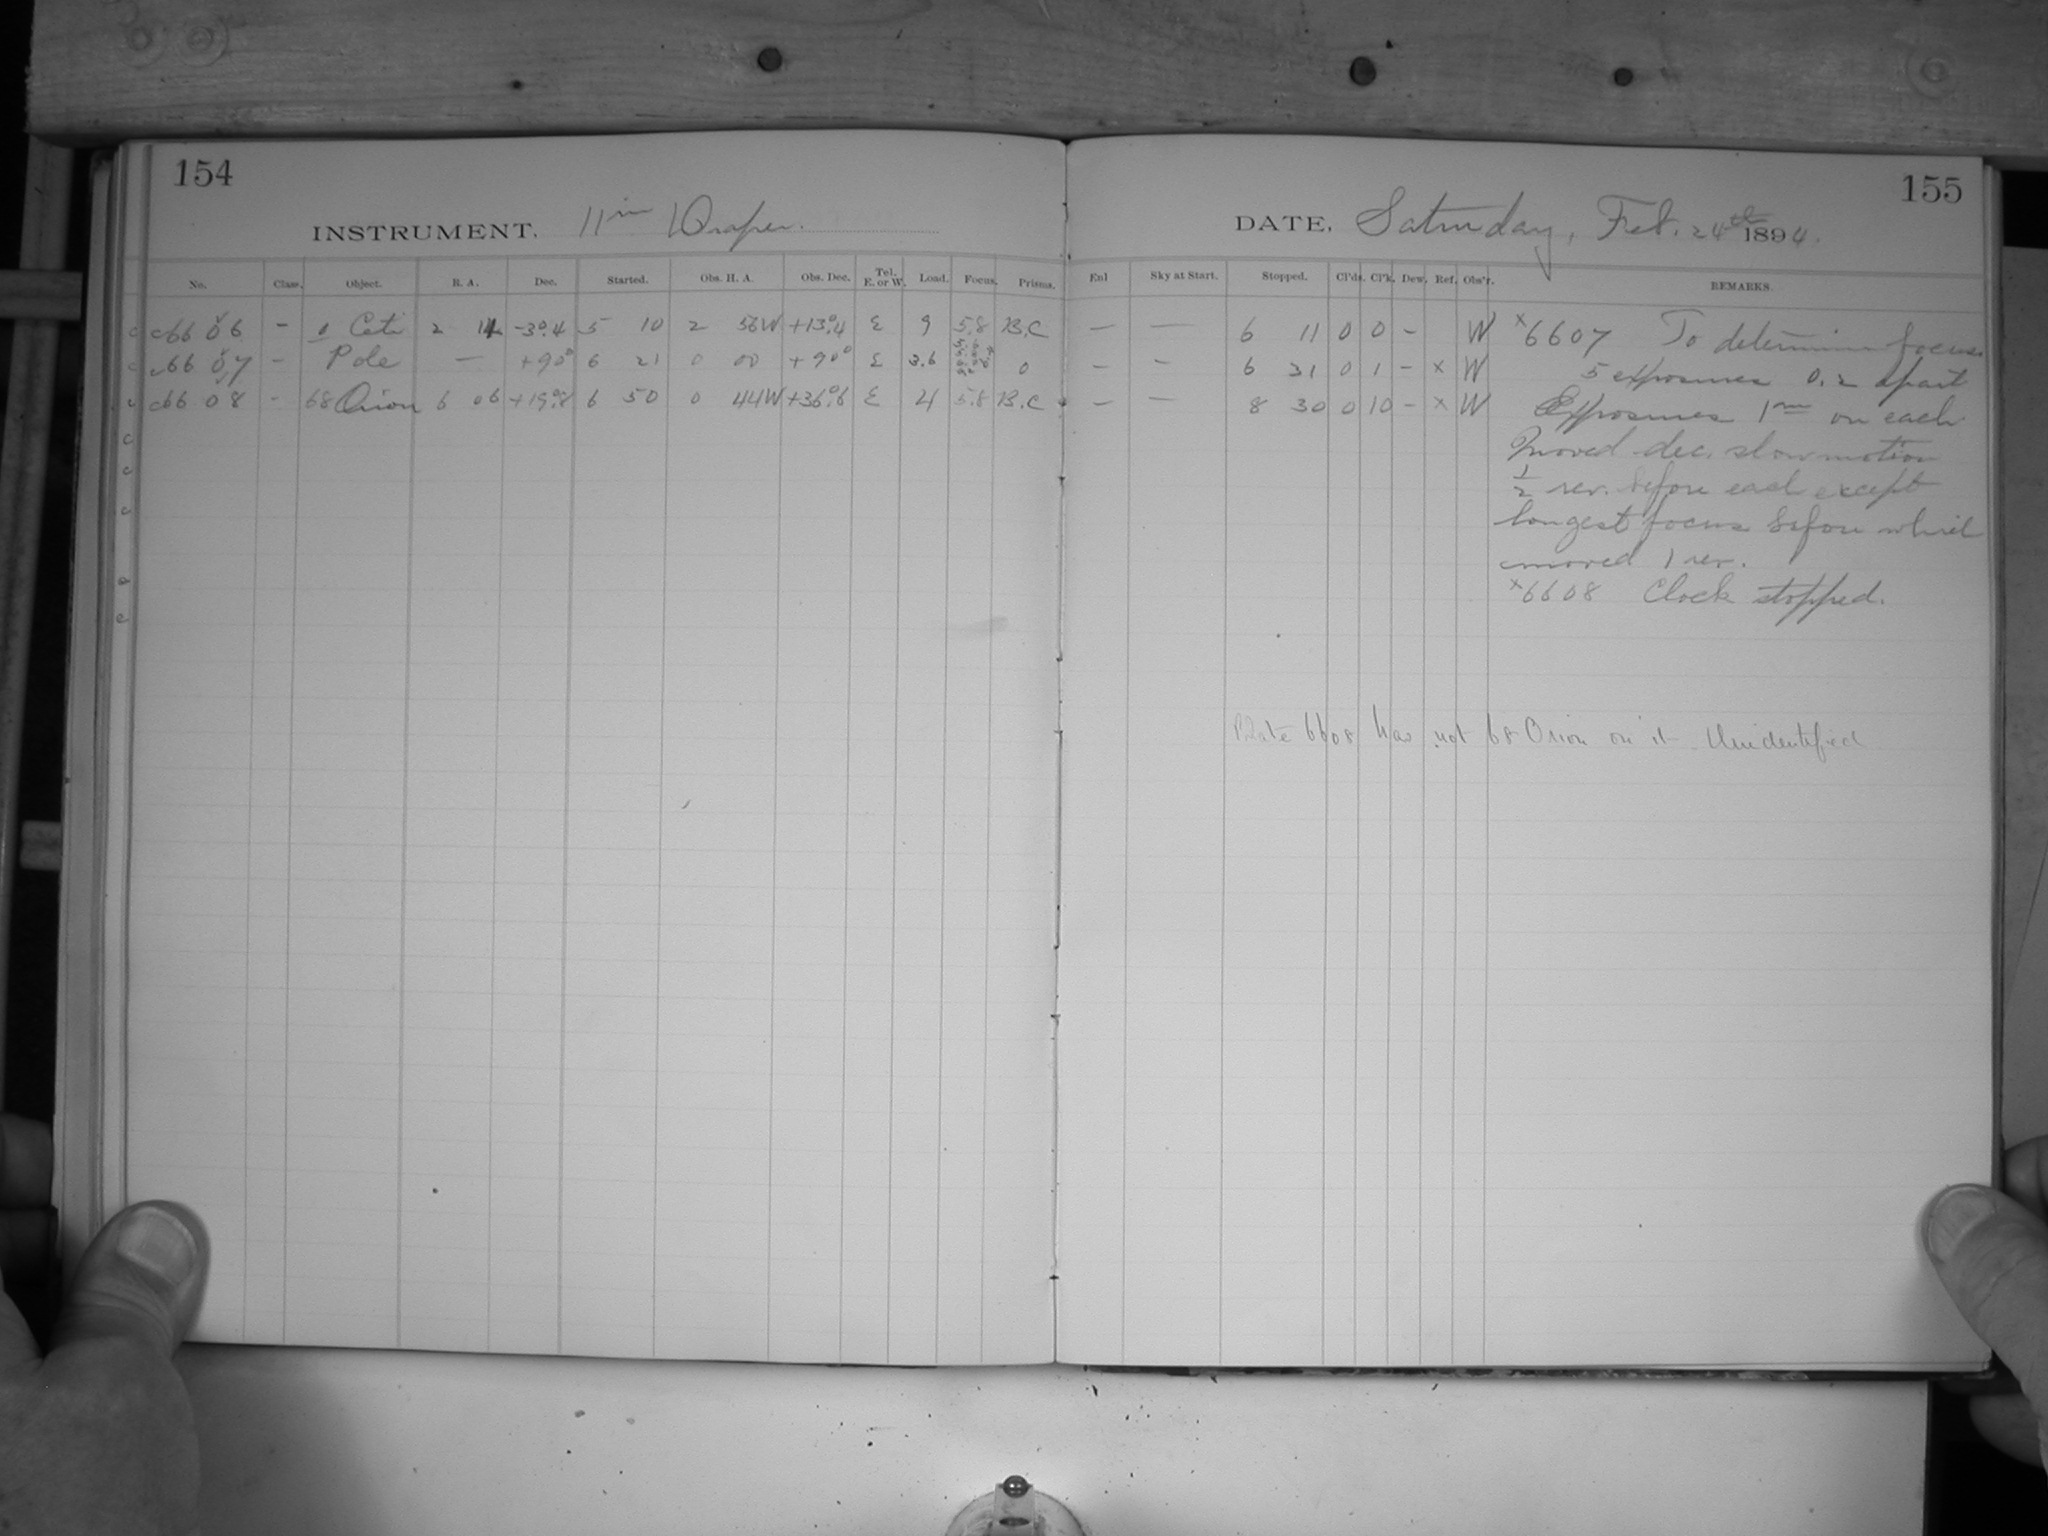 154
INSTRUMENT. 11 in Draper.
No. Class. Object. R. A. Dec. Started. Obs. H. A. Obs. Dec. Tel. E. or W. Load. Focus. Prisms.
c6606 - o Ceti 2 14 -3°.4 5 10 2 56W +13°.4 E 9 5.8 B.C
c6607 - Pole — +90° 6 21 0 00 +90° E 3.6 0
c6608 - 68 Orion 6 06 +19°.8 6 50 0 44W +36°.6 E 4 5.8 B.C
155
DATE. Saturday, Feb. 24th 1894.
Enl Sky at Start. Stopped. Cl'ds. Cl'k. Dew. Ref. Obs'r. REMARKS.
— — 6 11 0 0 - W x6607 To determine focus
— - 6 31 0 1 - x W 5 exposures 0.2 apart
— — 8 30 0 10 - x W Exposures 1m on each
Moved dec. slow motion
1/2 rev. before each except
longest focus before which
moved 1 rev.
x6608 Clock stopped.
Plate 6608 has not 68 Orion on it. Unidentified